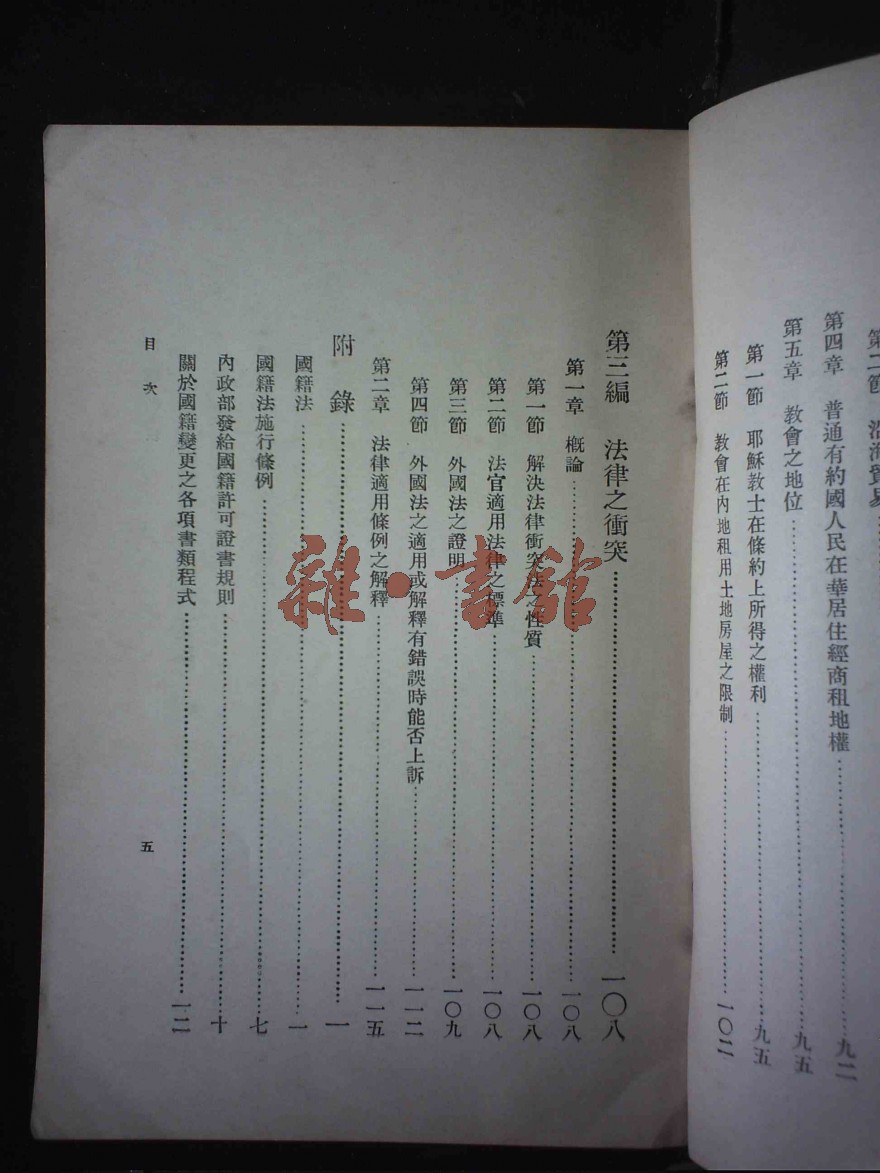 第二節 沿海貿易
第四章 普通有約國人民在華居住經商租地權……九二
第五章 教會之地位……九五
第一節 耶穌教士在條約上所得之權利……九五
第二節 教會在內地租用土地房屋之限制……一〇二
第三編 法律之衝突……一〇八
第一章 概論……一〇八
第一節 解決法律衝突法之性質……一〇八
第二節 法官適用法律之標準……一〇八
第三節 外國法之證明……一〇九
第四節 外國法之適用或解釋有錯誤時能否上訴……一一二
第二章 法律適用條例之解釋……一一五
附錄……一
國籍法……一
國籍法施行條例……七
內政部發給國籍許可證書規則……十
關於國籍變更之各項書類程式……一二
目次
五
雜·書館